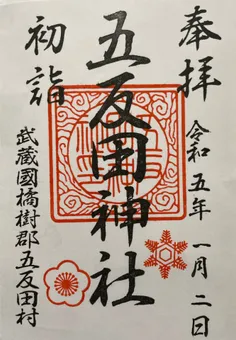 奉拝
令和五年一月二日
五反田神社
初詣
武蔵國橘樹郡五反田村